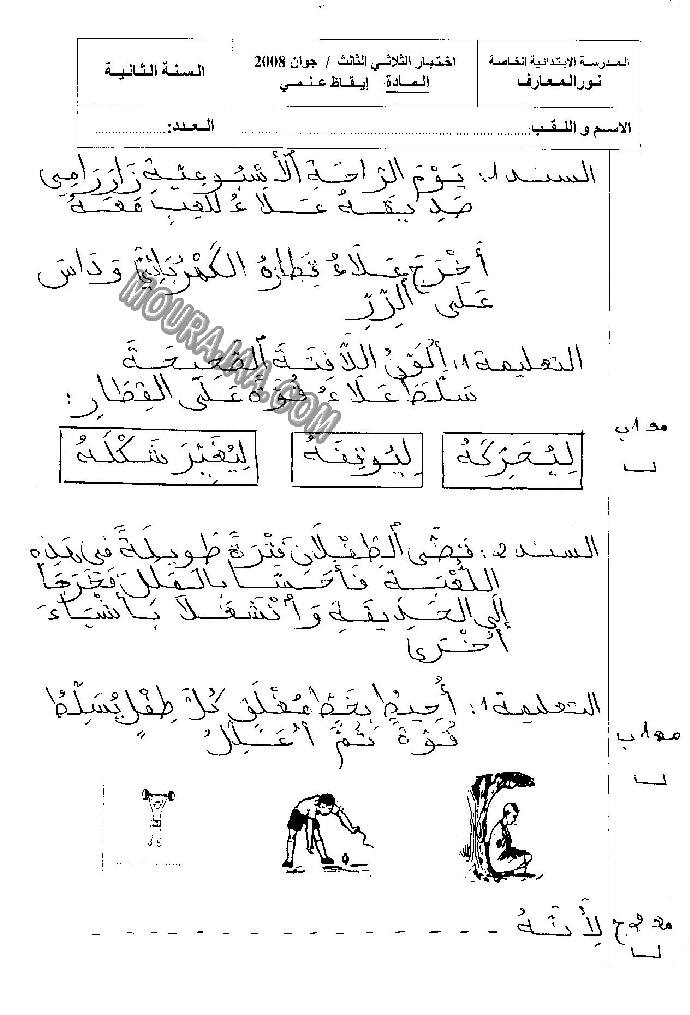 المدرسة الابتدائية الخاصة
نور المعارف
اختبار الثلاثي الثالث / جوان 2008
المادة إيقاظ علمي
السنة الثانية
الاسم و اللقب: العدد:
السند 1: يَوْمَ الرَّاحَةِ الْأُسْبُوعِيَّةِ زَارَ رَامِي
صَدِيقَهُ عَلَاءُ لِلَّعِبِ مَعَهُ
أَخْرَجَ عَلَاءُ قِطَارَهُ الكَهْرُبَائِيَّ وَدَاسَ
عَلَى الزِّرِّ
MOURAJAA.COM
التعليمة 1: أُلَوِّنُ اللَّافِتَةَ الصَّحِيحَةَ
سَلَّطَ عَلَاءُ قُوَّةً عَلَى القِطَارِ:
لِيُحَرِّكَهُ
لِيُوقِفَهُ
لِيُغَيِّرَ شَكْلَهُ
مع 1ب
السند 2: قَضَّى الطِّفْلَانِ فَتْرَةً طَوِيلَةً فِي هَذِهِ
اللُّعْبَةِ فَأَحَسَّا بِالمَلَلِ فَخَرَجَا
إِلَى الحَدِيقَةِ وَانْشَغَلَا بِأَشْيَاءَ
أُخْرَى
التعليمة 1: أُحِيطُ بِخَطٍّ مُغْلَقٍ كُلَّ طِفْلٍ يُسَلِّطُ
قُوَّةً ثُمَّ أُعَلِّلُ
مع 1ب
لِأَنَّهُ